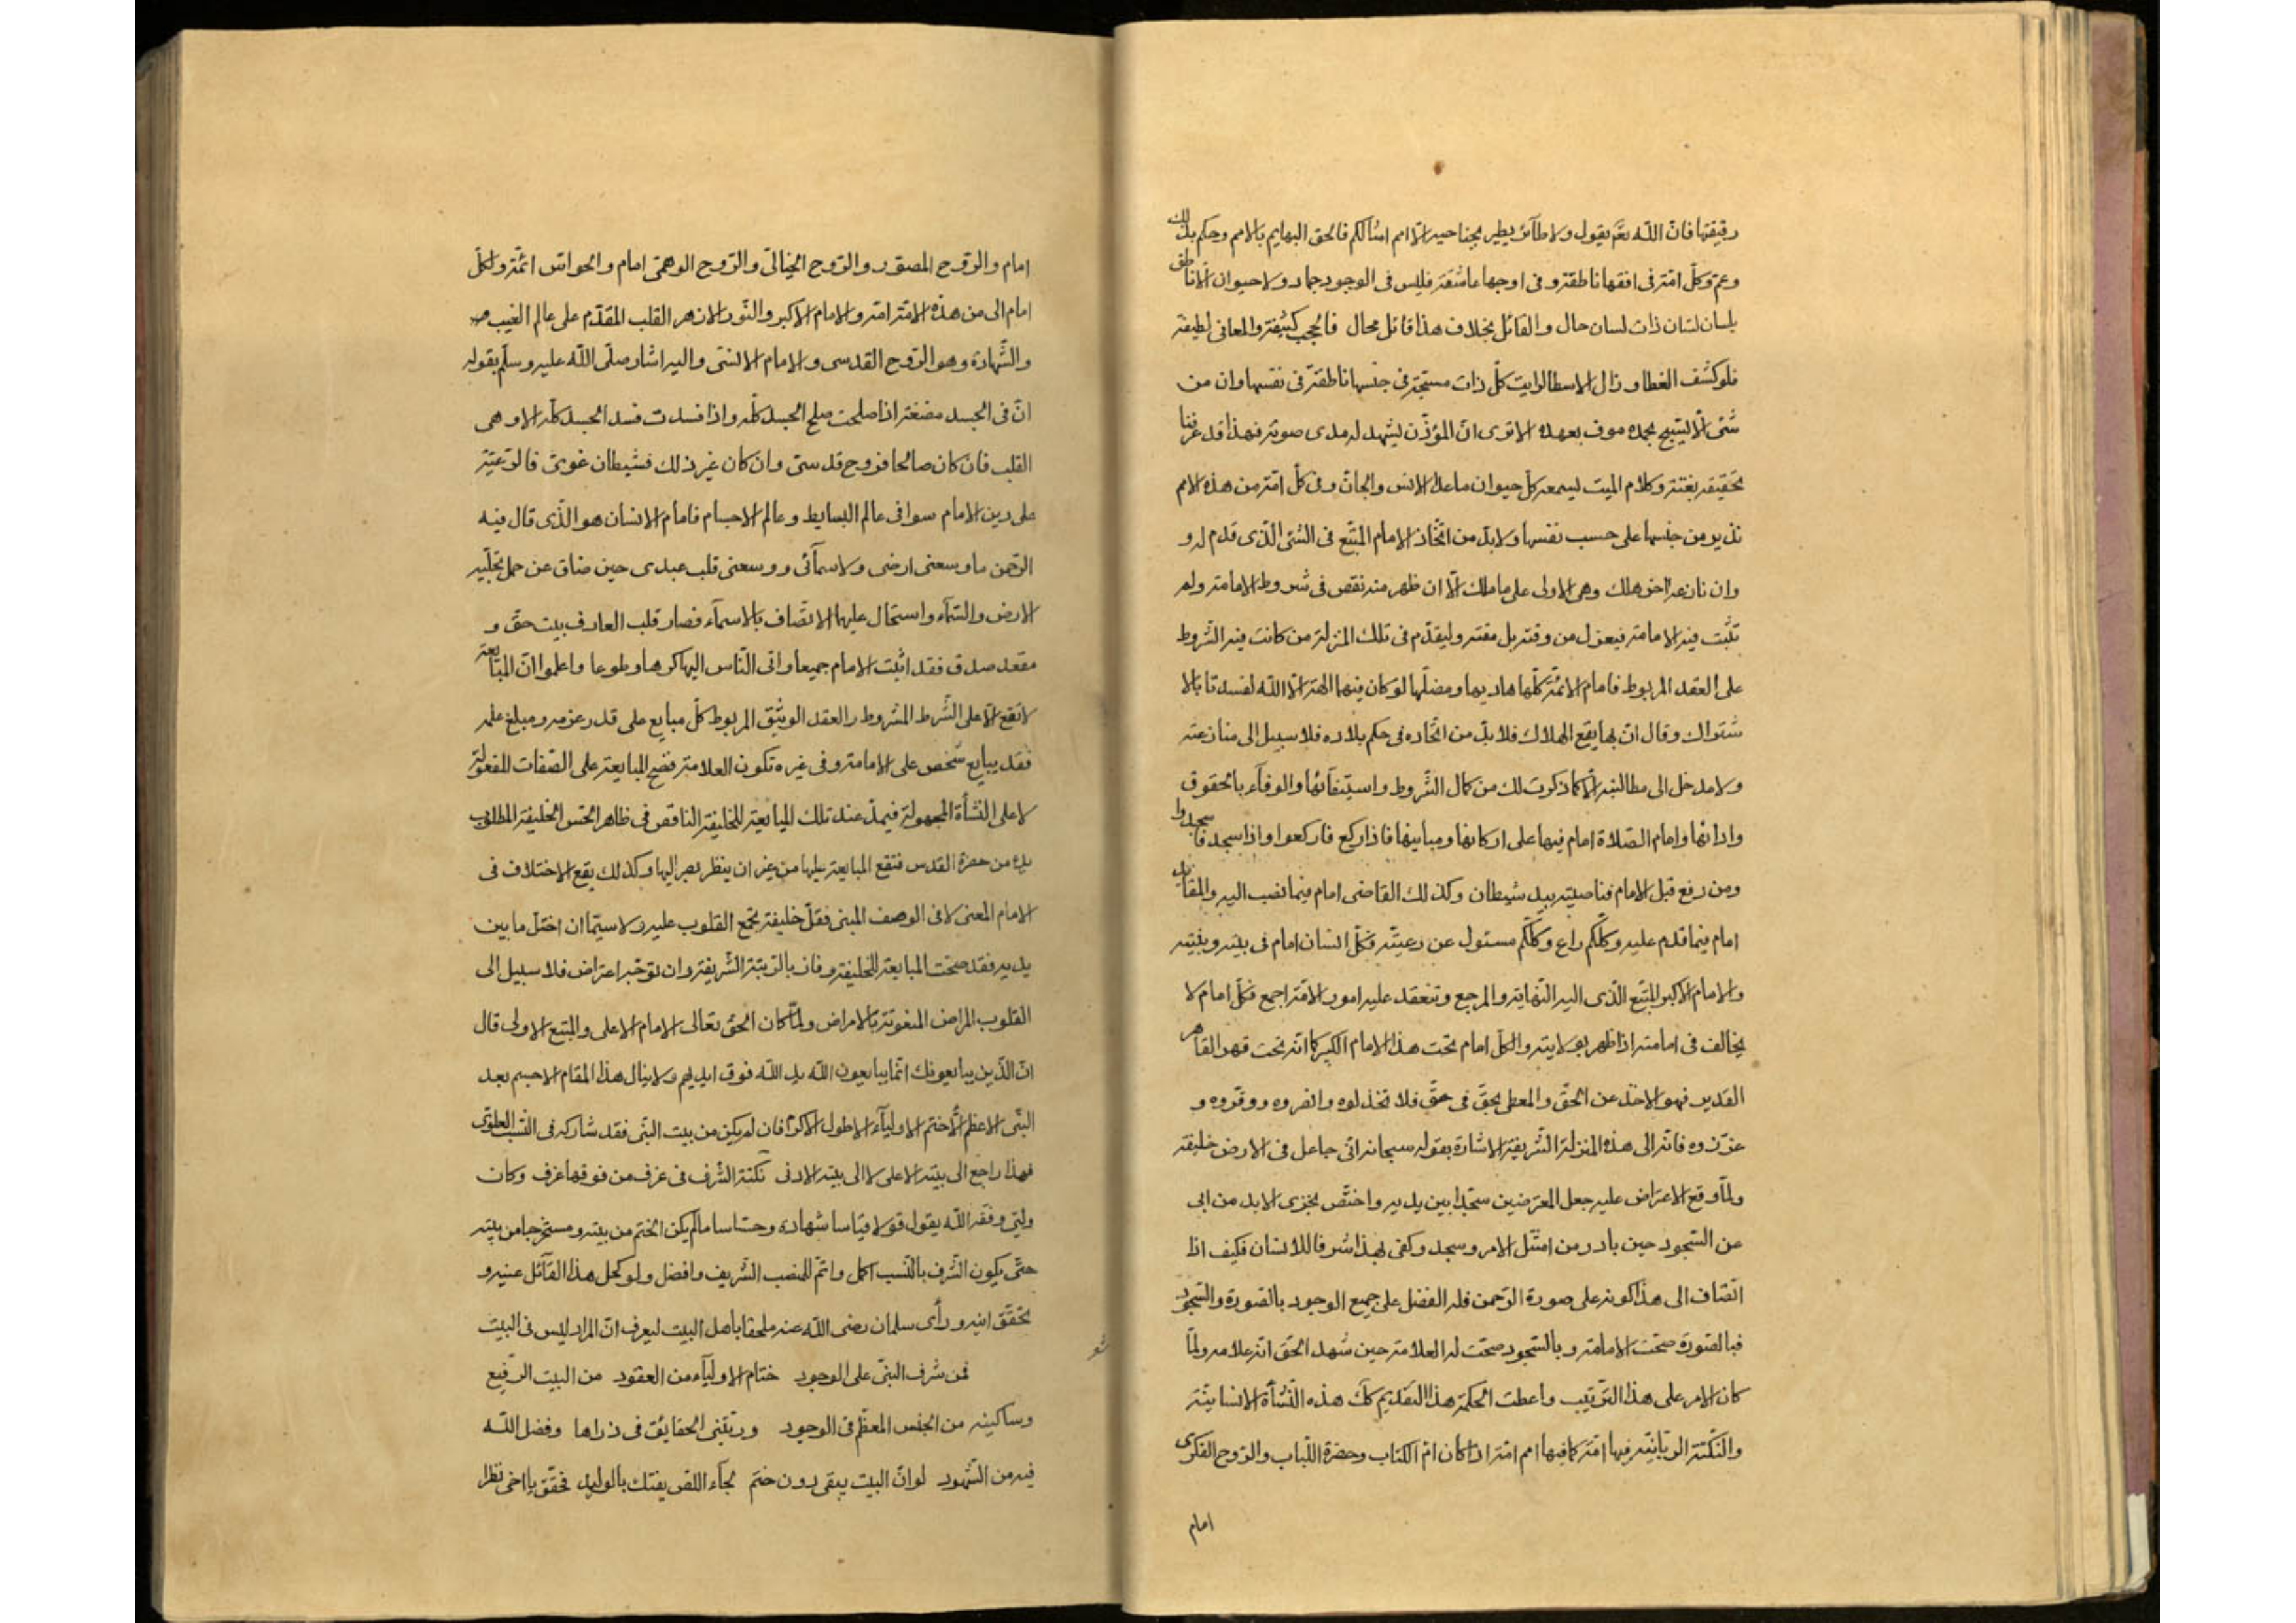 رقيقتها فانّ اللّه تعٓ يقول ولا طآئر يطير بجناحيه الّا امم امثالكم فالحق البهايم بالامم وحكم بذلك
وعمّ وكلّ امّة فى افقها ناطقة وفى اوجها عاشقة فليس فى الوجود جماد ولا حيوان الّا ناطق
بلسان لسان ذات لسان حال والقائل بخلاف هذا قائل محال فالحجب كثيفة والمعانى لطيفة
فلو كشف الغطا وزال الاسطا لرايت كلّ ذات مسبّحة فى جنسها ناطقة فى نفسها وان من
شئ الّا يسبّح بحمده موف بعهده الا ترى انّ المؤذّن يشهد له مدى صوته فهذا قد عرفنا
حقيقة بغتة وكلام الميت يسمعه كلّ حيوان ما عدا الانس والجانّ وفى كلّ امّة من هذه الامم
نذير من جنسها على حسب نفسها ولا بدّ من اتّخاذ الامام المتّبع فى الشئ الّذى قدم له و
وان نازعه اخر هلك وهى الاولى على ما ملك الّا ان ظهر منه نقص فى شروط الامامة ولم
تثبت فيه الامامة فيعزل من وقته بل مقته وليقدّم فى تلك المنزلة من كانت فيه الشّروط
على العقد المربوط فامام الائمّة كلّها هاديها ومضلّها لو كان فيهما الهة الّا اللّه لفسدتا بالا
شتراك وقال انّ بها يقع الهلاك فلا بدّ من اتّحاده فى حكم بلاده فلا سبيل الى منازعته
ولا مدخل الى مطالبته الّا كما ذكرت لك من كمال الشّروط واستيفآئها والوفآء بالحقوق
وادائها وامام الصّلاة امام فيها على اركانها ومبانيها فاذا ركع فاركعوا واذا سجد فاسجدوا
ومن رفع قبل الامام فناصيته بيد شيطان وكذلك القاضى امام فيما نصب اليه والمقاتل
امام فيما قدم عليه وكلّكم راع وكلّكم مسئول عن رعيّته فكلّ انسان امام فى بيته وبنيته
والامام الاكبر المتّبع الّذى اليه النّهاية والمرجع وتنعقد عليه امور الامّة اجمع فكلّ امام لا
يخالف فى امامته اذا ظهر بولايته والكلّ امام تحت هذا الامام الكبير كما انّه تحت قهر القاهر
القدير فهو الاخذ عن الحقّ والمعطى بحقّ فى حقّ فلا تخذلوه وانصروه ووقّروه و
عزّروه فانّه الى هذه المنزلة الشّريفة الاشارة بقوله سبحانه انّى جاعل فى الارض خليفة
ولمّا وقع الاعتراض عليه جعل المعترضين سجّدا بين يديه واختصّ بخزى الابد من ابى
عن السّجود حين بادر من امتثل الامر وسجد وكفى بهذا شرفا للانسان فكيف اذا
انضاف الى هذا كونه على صورة الرّحمن فله الفضل على جميع الوجود بالصّورة والسّجود
فبالصّورة صحّت الامامة وبالسّجود صحت له العلامة حين شهد الحقّ انّه علامه ولمّا
كان الامر على هذا التّرتيب واعطت الحكمة هذا التّقديم كلّ هذه النّشأة الانسانيّة
والنّكتة الرّبّانيّة فيها امّة كما فيها امم امّة اذ كان امّ الكتاب وحضرة اللّباب والرّوح الفكرى
امام
امام والرّوح المصوّر والرّوح الخيالىّ والرّوح الوهمىّ امام والحواسّ ائمّة ولكلّ
امام الى من هذه الامّة امّة والامام الاكبر والنّور الازهر القلب المقدّم على عالم الغيب
والشّهادة وهو الرّوح القدسى والامام الانسّى واليه اشار صلّى اللّه عليه وسلّم بقوله
انّ فى الجسد مضغة اذا صلحت صلح الجسد كلّه واذا فسدت فسد الجسد كلّه الا وهى
القلب فان كان صالحا فروح قدسىّ وان كان غير ذلك فشيطان غوىّ فالرّعيّة
على دين الامام سوا فى عالم البسايط وعالم الاجسام فامام الانسان هو الّذى قال فيه
الرّحمن ما وسعنى ارضى ولا سمآئى ووسعنى قلب عبدى حين ضاق عن حمل تجلّيه
الارض والسّمآء واستحال عليهما الاتّصاف بالاسمآء فصار قلب العارف بيت حقّ و
مقعد صدق فقد اثبت الامام جميعا واتى النّاس اليها كرها وطوعا واعلموا انّ المبايعة
لا تقع الّا على الشّرط المشروط والعقد الوثيق المربوط كلّ مبايع على قدر عزمه ومبلغ علمه
فقد يبايع شخص على الامامة وفى غيره تكون العلامة فتصحّ المبايعة على الصّفات المعقولة
لا على النّشأة المجهولة فيمدّ عند تلك المبايعة للخليفة الناقص فى ظاهر الحسّ الخليفة المطلوب
يده من حضرة القدس فتقع المبايعة عليها من غير ان ينظر ببصر اليها وكذلك يقع الاختلاف فى
الامام المعنى لا فى الوصف المبنى فقلّ خليفة تجمع القلوب عليه ولا سيّما ان اختلّ ما بين
يديه فقد صحّت المبايعة للخليفة وفاز بالرّتبة الشّريفة وان توجّه اعتراض فلا سبيل الى
القلوب المراض المنعوتة بالامراض ولمّا كان الحقّ تعالى الامام الاعلى والمتّبع الاولى قال
انّ الّذين يبايعونك انّما يبايعون اللّه يد اللّه فوق ايديهم ولا ينال هذا المقام الاجسم بعد
النّبىّ الاعظم الّا ختم الاوليآء الاطول الاكرم فان لم يكن من بيت النّبى فقد شاركه فى النّسب العلوىّ
فهذا راجع الى بيته الاعلى لا الى بيته الادنى نكتة الشّرف فى غرف من فوقها غرف وكان
ولىّ وفقه اللّه يقول قولا قياسا شهادة وحسّاسا ما لم يكن الختم من بيته ومستخرجا من بيته
حتّى يكون الشّرف بالنّسب اكمل واتمّ للمنصب الشّريف وافضل ولو كحل هذا القآئل عينيه و
تحقّق اينه ورأى سلمان رضى اللّه عنه ملحقا باهل البيت ليعرف انّ المراد ليس فى البيت
شعر
فمن شرف النّبىّ على الوجود ختام الاوليآء من العقود من البيت الرّفيع
وساكنيه من الجنس المعظّم فى الوجود وربتنى الحقايق فى ذراها وفضل اللّه
فيه من الشّهود لو انّ البيت يبقى دون ختم لجآء اللصّ يفتك بالوليد فحقّق يا اخى نظرا